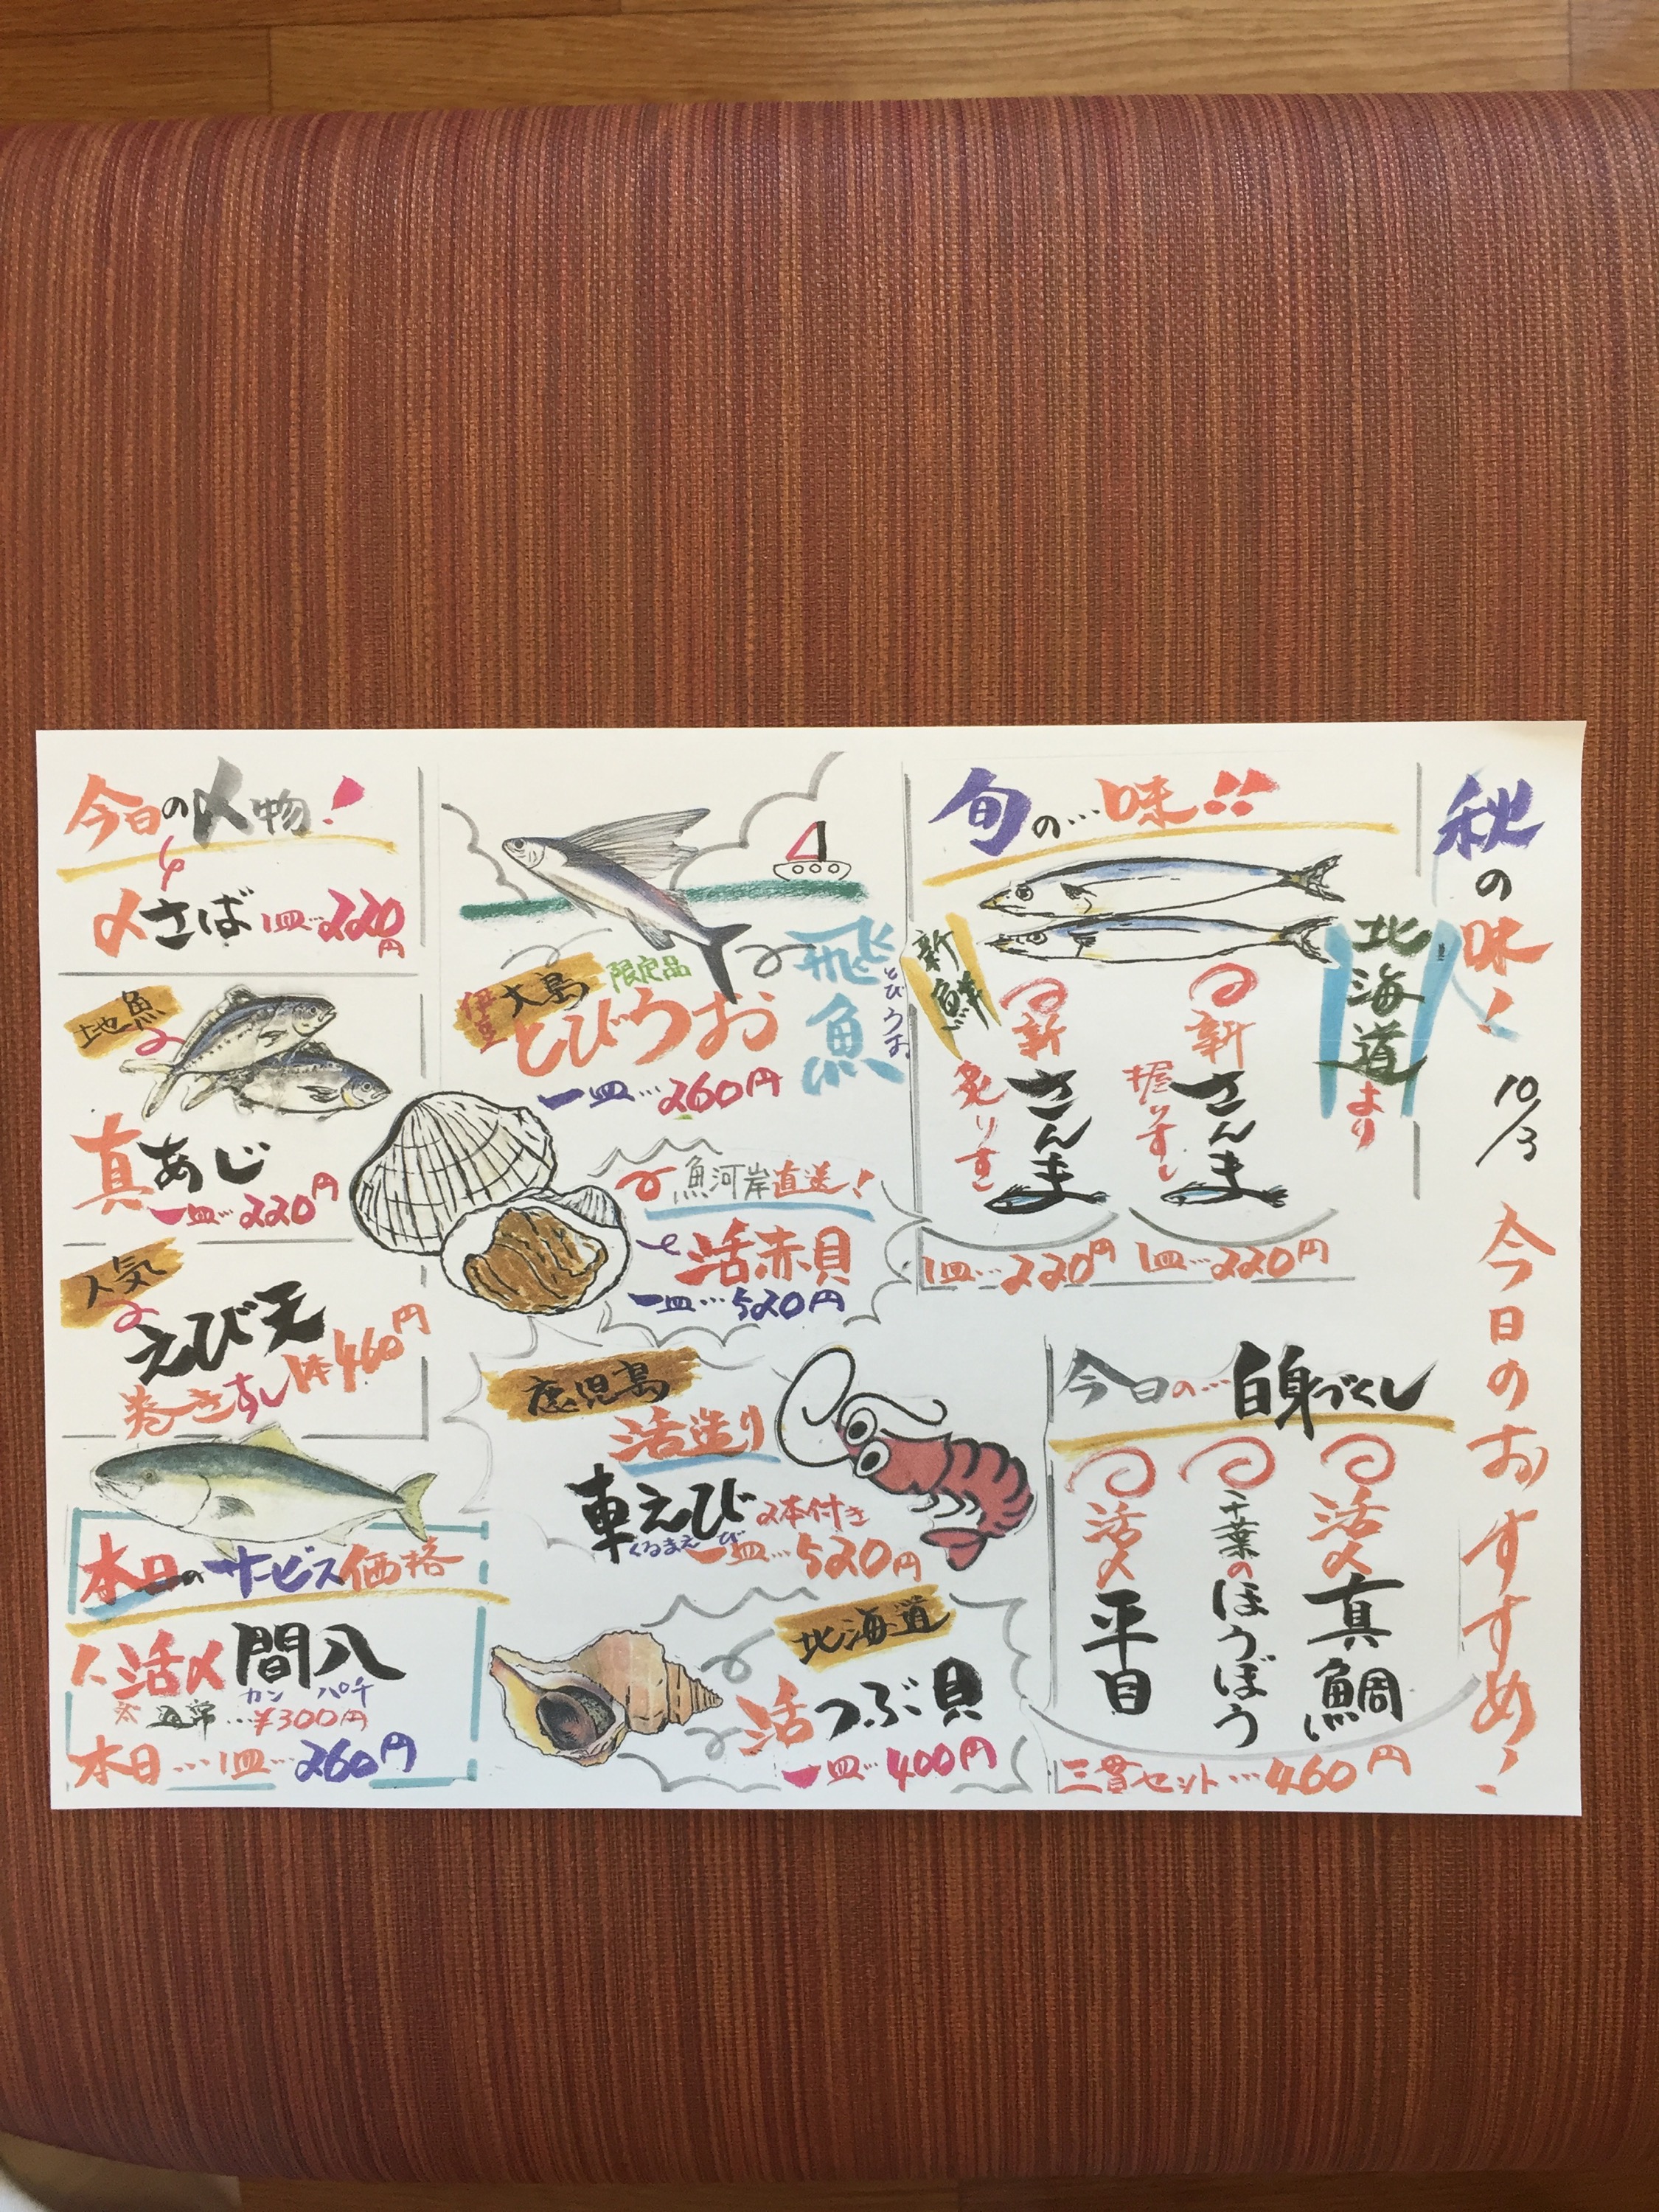 秋の味!
10/3
今日のおすすめ!
旬の…味!!
北海道より
新鮮
新さんま
握りすし
1皿…220円
新さんま
炙りすし
1皿…220円
今日の…白身づくし
活〆真鯛
千葉のほうぼう
活〆平目
三貫セット…460円
伊豆大島
限定品
とびうお
飛魚
とびうお
一皿…260円
魚河岸直送!
活赤貝
一皿…520円
鹿児島
活造り
車えび 2本付き
くるまえび
一皿…520円
北海道
活つぶ貝
一皿…400円
今日の〆物!
〆さば 1皿…220円
地魚
真あじ
一皿…220円
人気
えび天
巻きすし 1本460円
本日のサービス価格
活〆間八
カンパチ
通常…¥300円
本日…1皿…260円